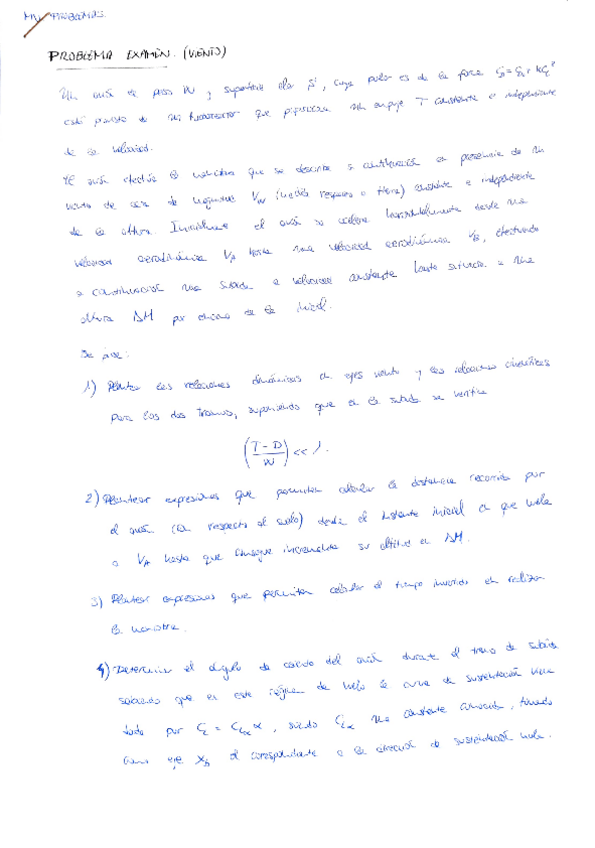 PROBLEMAS
PROBLEMA EXAMEN. (VIENTO)
Un avión de peso W y superficie alar S, cuya polar es de la forma C_D = C_D0 + kC_L²
está provisto de un turborreactor que proporciona un empuje T constante e independiente
de la velocidad.
El avión efectúa la maniobra que se describe a continuación en presencia de un
viento de cara de magnitud V_W (medida respecto a tierra) constante e independiente
de la altura. Inicialmente el avión se acelera horizontalmente desde una
velocidad aerodinámica V_A hasta una velocidad aerodinámica V_B, efectuando
a continuación una subida a velocidad constante hasta situarse a una
altura ΔH por encima de la inicial.
Se pide:
1) Plantear las relaciones dinámicas en ejes viento y las relaciones cinemáticas
para los dos tramos, suponiendo que en la subida se verifica
((T - D)/W) << 1.
2) Plantear expresiones que permitan calcular la distancia recorrida por
el avión (con respecto al suelo) desde el instante inicial en que vuela
a V_A hasta que consigue incrementar su altitud en ΔH.
3) Plantear expresiones que permitan calcular el tiempo invertido en realizar
la maniobra.
4) Determinar el ángulo de asiento del avión durante el tramo de subida
sabiendo que en este régimen de vuelo la curva de sustentación viene
dada por C_L = C_Lα α, siendo C_Lα una constante conocida, tomando
como eje X_b el correspondiente a la dirección de sustentación nula.